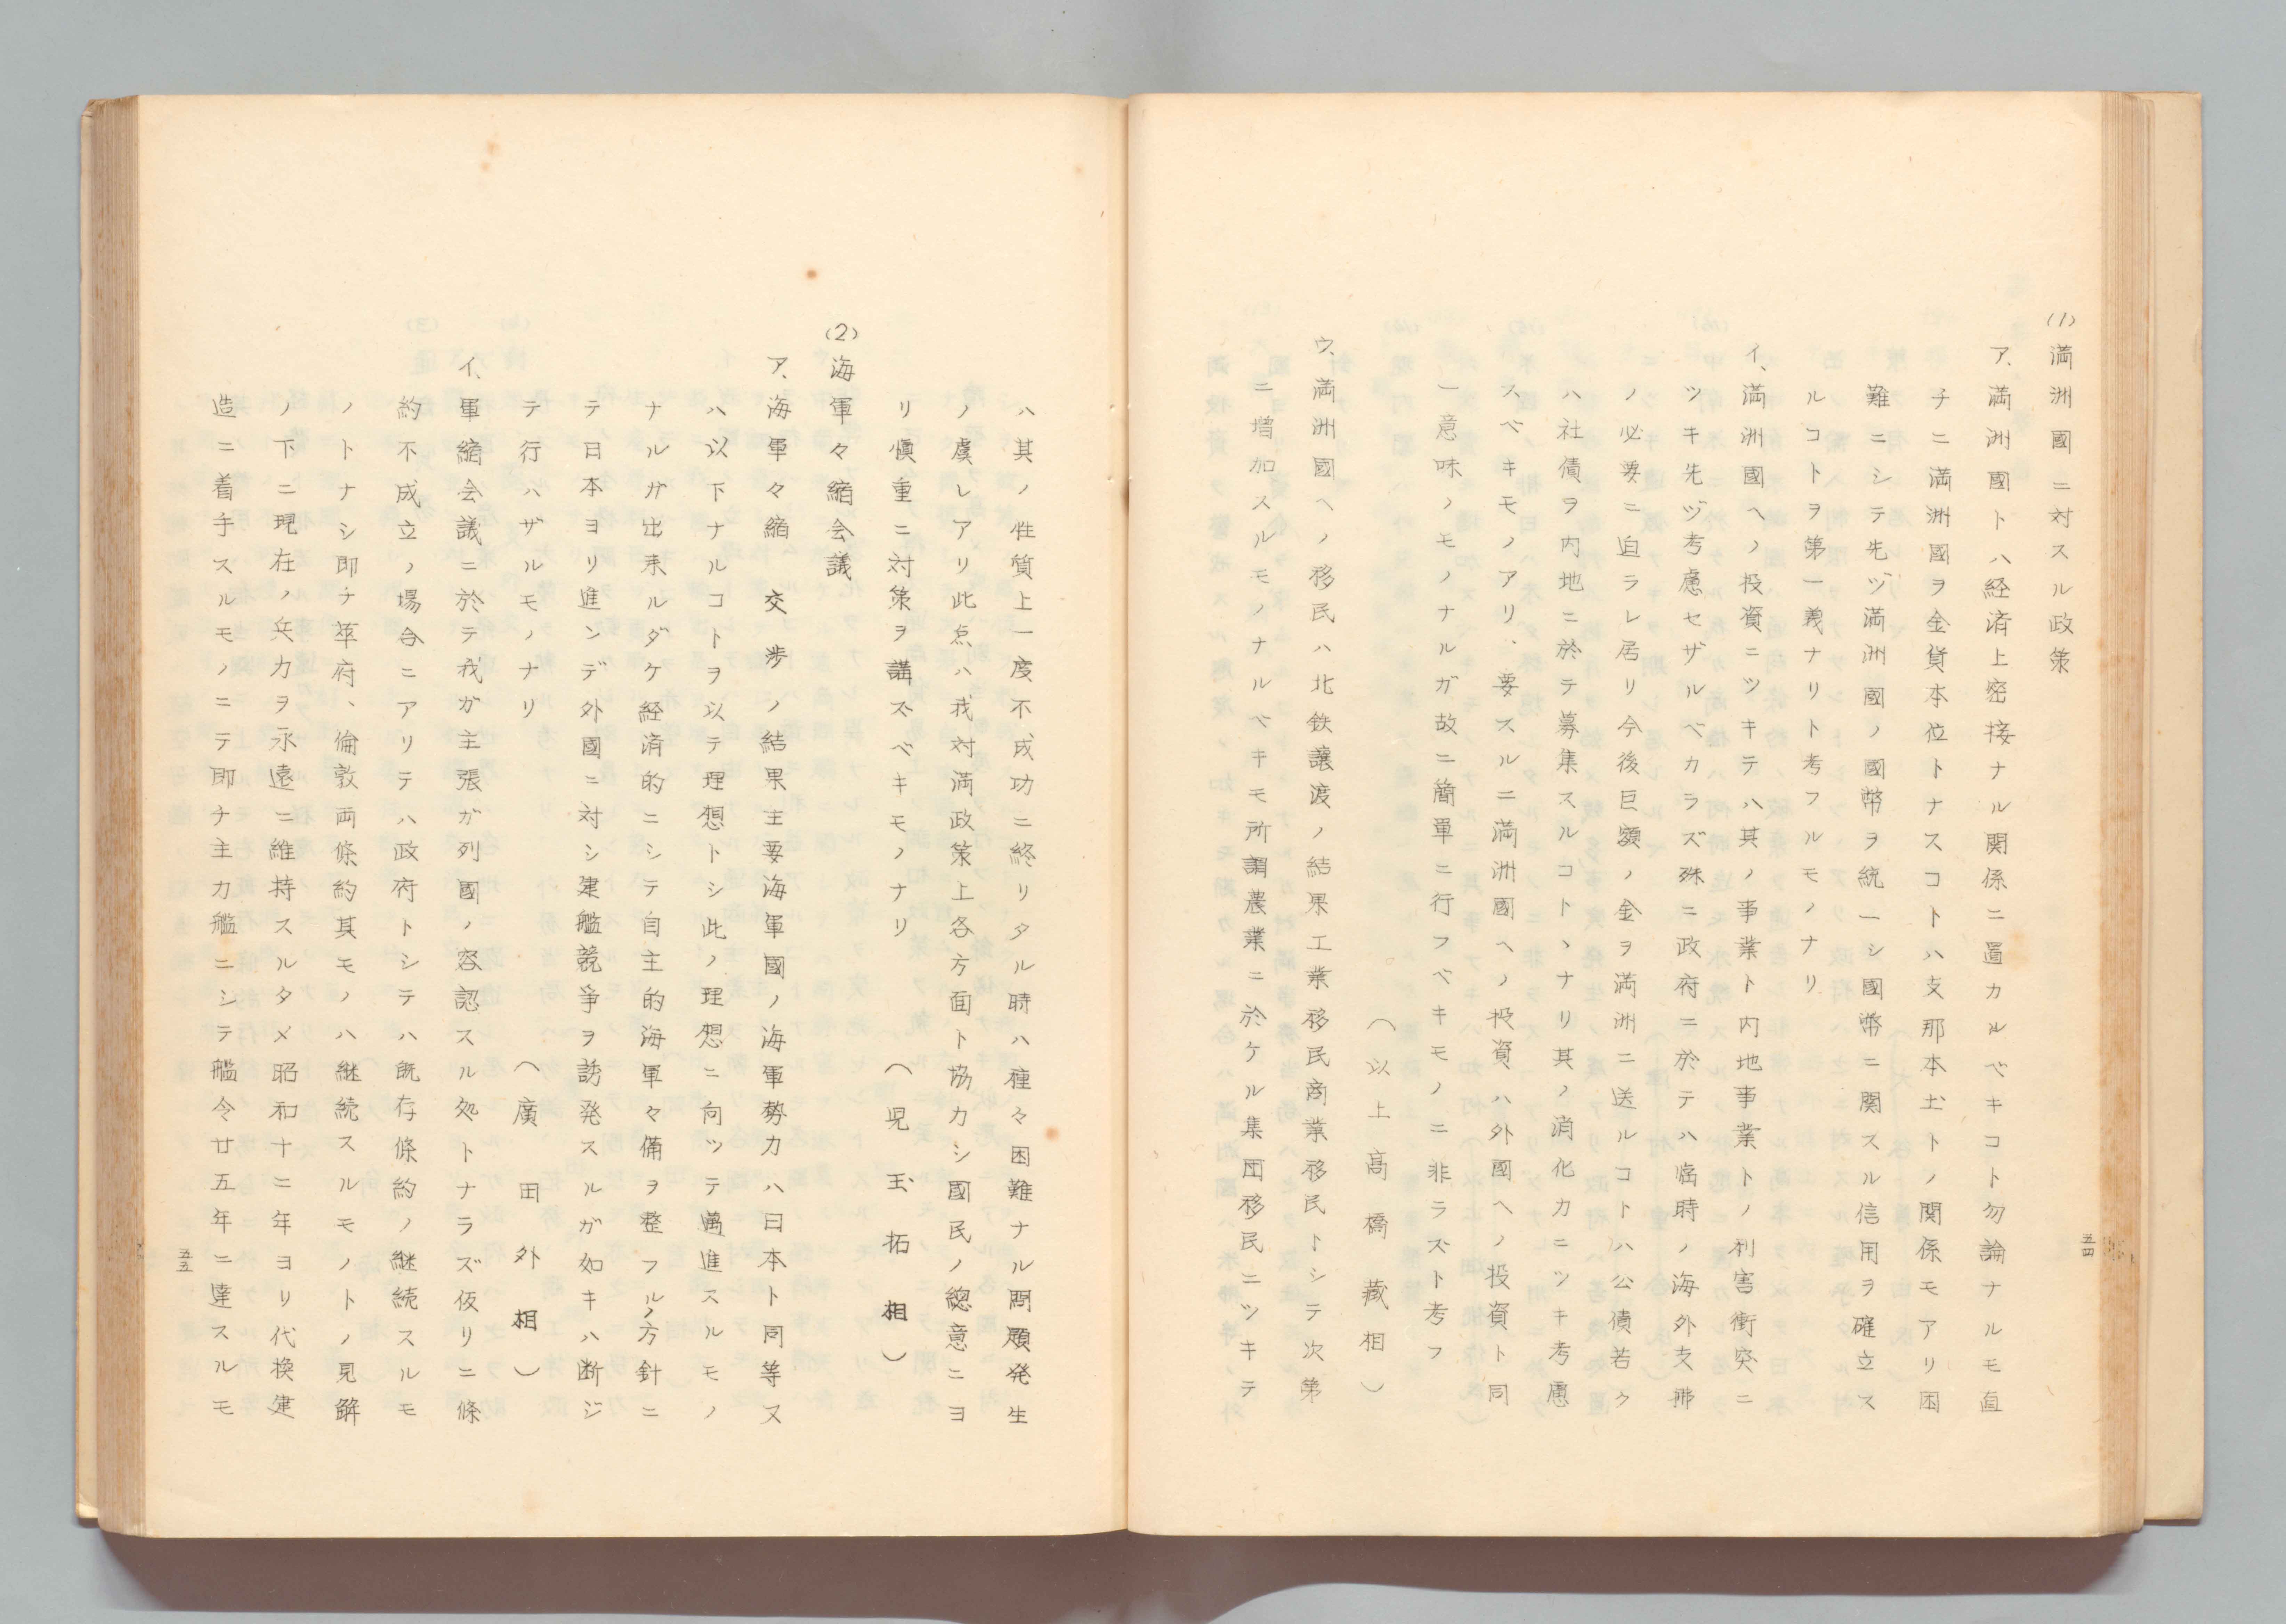 (1)満洲國ニ対スル政策
ア、満洲國トハ経済上密接ナル関係ニ置カルベキコト勿論ナルモ直
チニ満洲國ヲ金貨本位トナスコトハ支那本土トノ関係モアリ困
難ニシテ先ヅ満洲國ノ國幣ヲ統一シ國幣ニ関スル信用ヲ確立ス
ルコトヲ第一義ナリト考フルモノナリ
イ、満洲國ヘノ投資ニツキテハ其ノ事業ト内地事業トノ利害衝突ニ
ツキ先ヅ考慮セザルベカラズ殊ニ政府ニ於テハ臨時ノ海外支拂
ノ必要ニ迫ラレ居リ今後巨額ノ金ヲ満洲ニ送ルコトハ公債若ク
ハ社債ヲ内地ニ於テ募集スルコトヽナリ其ノ消化力ニツキ考慮
スベキモノアリ、要スルニ満洲國ヘノ投資ハ外國ヘノ投資ト同
一意味ノモノナルガ故ニ簡單ニ行フベキモノニ非ラズト考フ
（以上高橋藏相）
ウ、満洲國ヘノ移民ハ北鉄譲渡ノ結果工業移民商業移民トシテ次第
ニ増加スルモノナルベキモ所謂農業ニ於ケル集団移民ニツキテ
五四
ハ其ノ性質上一度不成功ニ終リタル時ハ種々困難ナル問題発生
ノ虞レアリ此点ハ我対満政策上各方面ト協力シ國民ノ總意ニヨ
リ慎重ニ対策ヲ講スベキモノナリ
（児玉拓相）
(2)海軍々縮会議
ア、海軍々縮交渉ノ結果主要海軍國ノ海軍勢力ハ日本ト同等又
ハ以下ナルコトヲ以テ理想トシ此ノ理想ニ向ツテ邁進スルモノ
ナルガ出来ルダケ経済的ニシテ自主的海軍々備ヲ整フルノ方針ニ
テ日本ヨリ進ンデ外國ニ対シ建艦競争ヲ誘発スルガ如キハ断ジ
テ行ハザルモノナリ
（廣田外相）
イ、軍縮会議ニ於テ我ガ主張ガ列國ノ容認スル処トナラズ仮リニ條
約不成立ノ場合ニアリテハ政府トシテハ既存條約ノ継続スルモ
ノトナシ即チ華府、倫敦両條約其モノハ継続スルモノトノ見解
ノ下ニ現在ノ兵力ヲ永遠ニ維持スルタメ昭和十二年ヨリ代換建
造ニ着手スルモノニテ即チ主力艦ニシテ艦令廿五年ニ達スルモ
五五